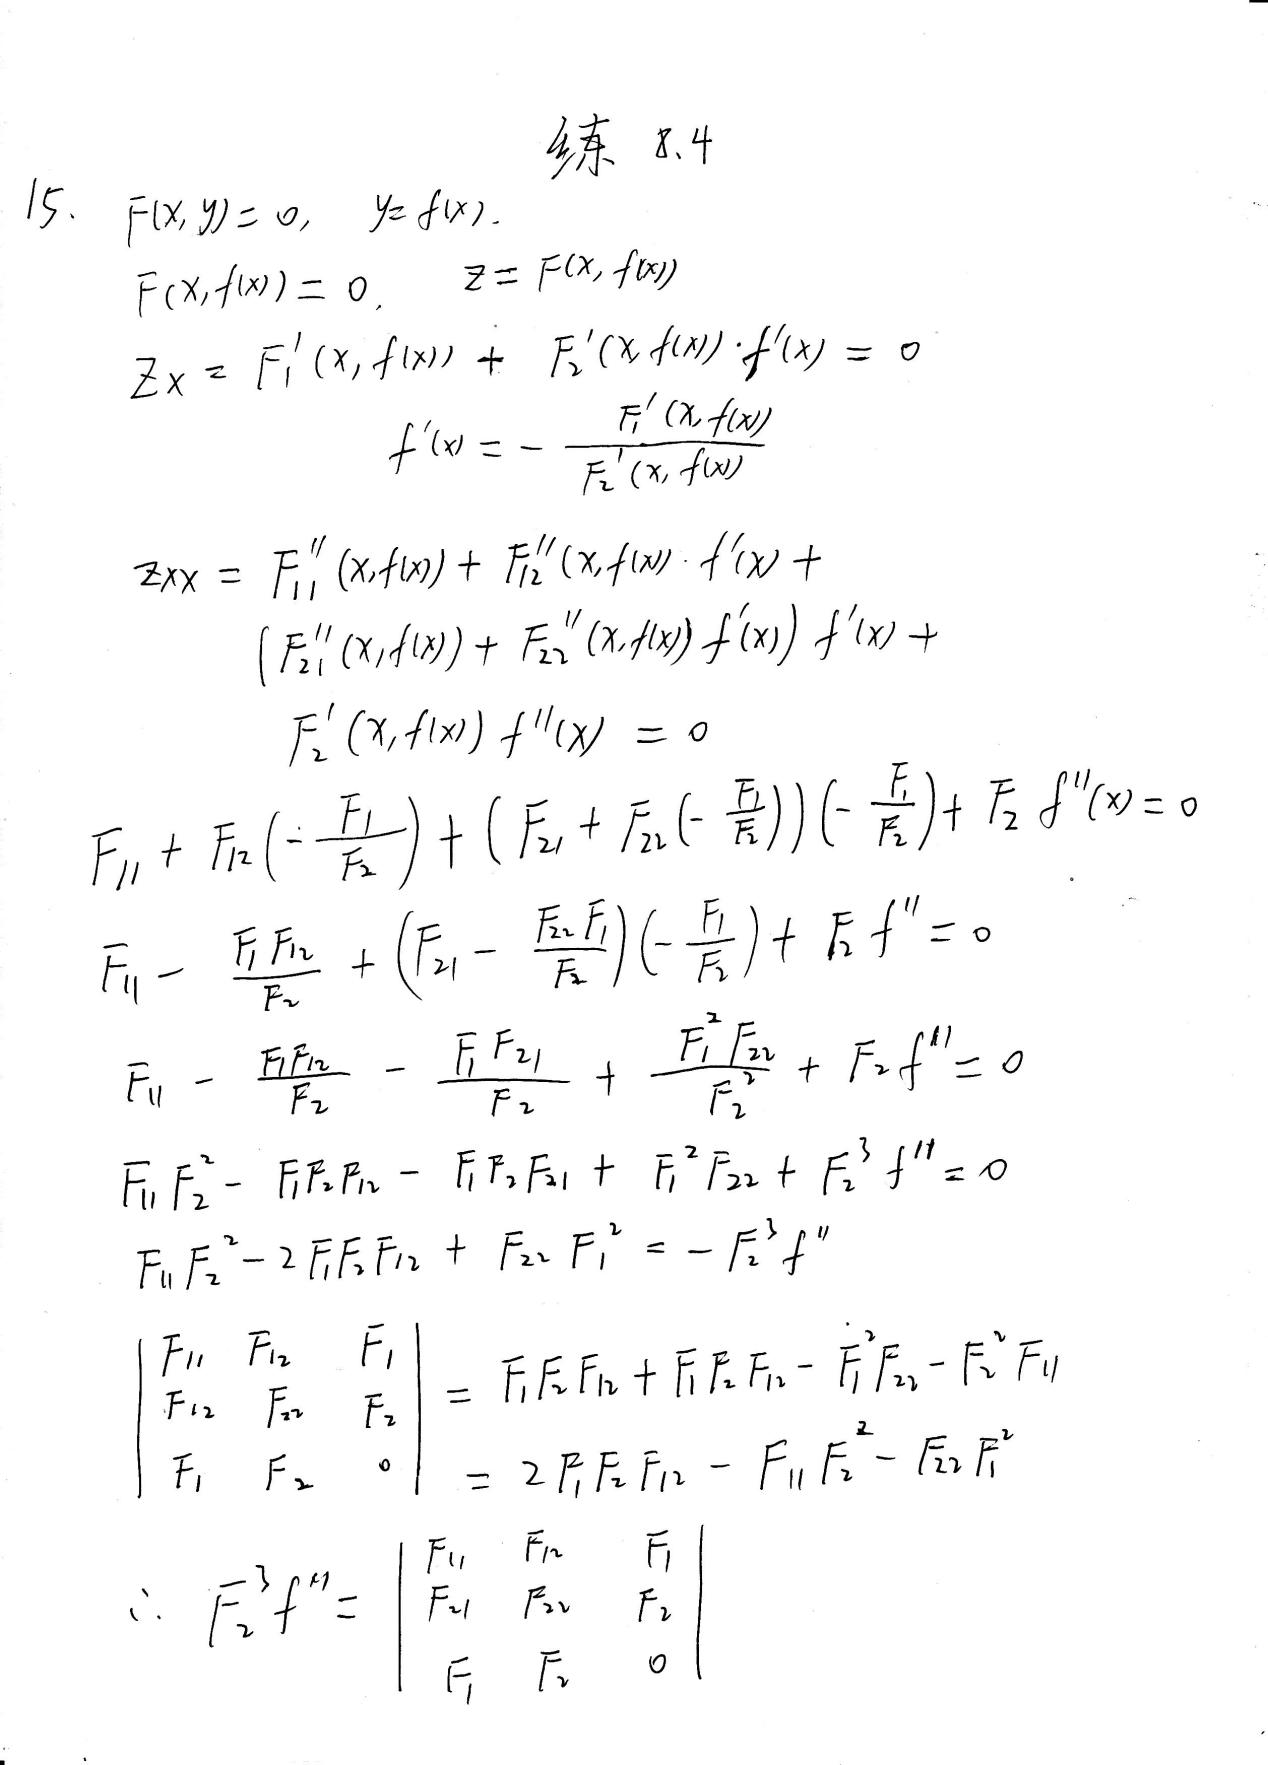 练 8.4
15. F(x, y) = 0, y = f(x).
F(x, f(x)) = 0. z = F(x, f(x))
Zx = F₁'(x, f(x)) + F₂'(x, f(x))·f'(x) = 0
f'(x) = - F₁'(x, f(x)) / F₂'(x, f(x))
zxx = F₁₁''(x, f(x)) + F₁₂''(x, f(x))·f'(x) +
(F₂₁''(x, f(x)) + F₂₂''(x, f(x)) f'(x)) f'(x) +
F₂'(x, f(x)) f''(x) = 0
F₁₁ + F₁₂(- F₁/F₂) + (F₂₁ + F₂₂(- F₁/F₂))(- F₁/F₂) + F₂ f''(x) = 0
F₁₁ - F₁F₁₂/F₂ + (F₂₁ - F₂₂F₁/F₂)(- F₁/F₂) + F₂ f'' = 0
F₁₁ - F₁F₁₂/F₂ - F₁F₂₁/F₂ + F₁²F₂₂/F₂² + F₂f'' = 0
F₁₁F₂² - F₁F₂F₁₂ - F₁F₂F₂₁ + F₁²F₂₂ + F₂³f'' = 0
F₁₁F₂² - 2F₁F₂F₁₂ + F₂₂F₁² = - F₂³f''
| F₁₁ F₁₂ F₁ |
| F₁₂ F₂₂ F₂ | = F₁F₂F₁₂ + F₁F₂F₁₂ - F₁²F₂₂ - F₂²F₁₁
| F₁ F₂ 0 | = 2F₁F₂F₁₂ - F₁₁F₂² - F₂₂F₁²
| F₁₁ F₁₂ F₁ |
∴ F₂³f'' = | F₂₁ F₂₂ F₂ |
| F₁ F₂ 0 |